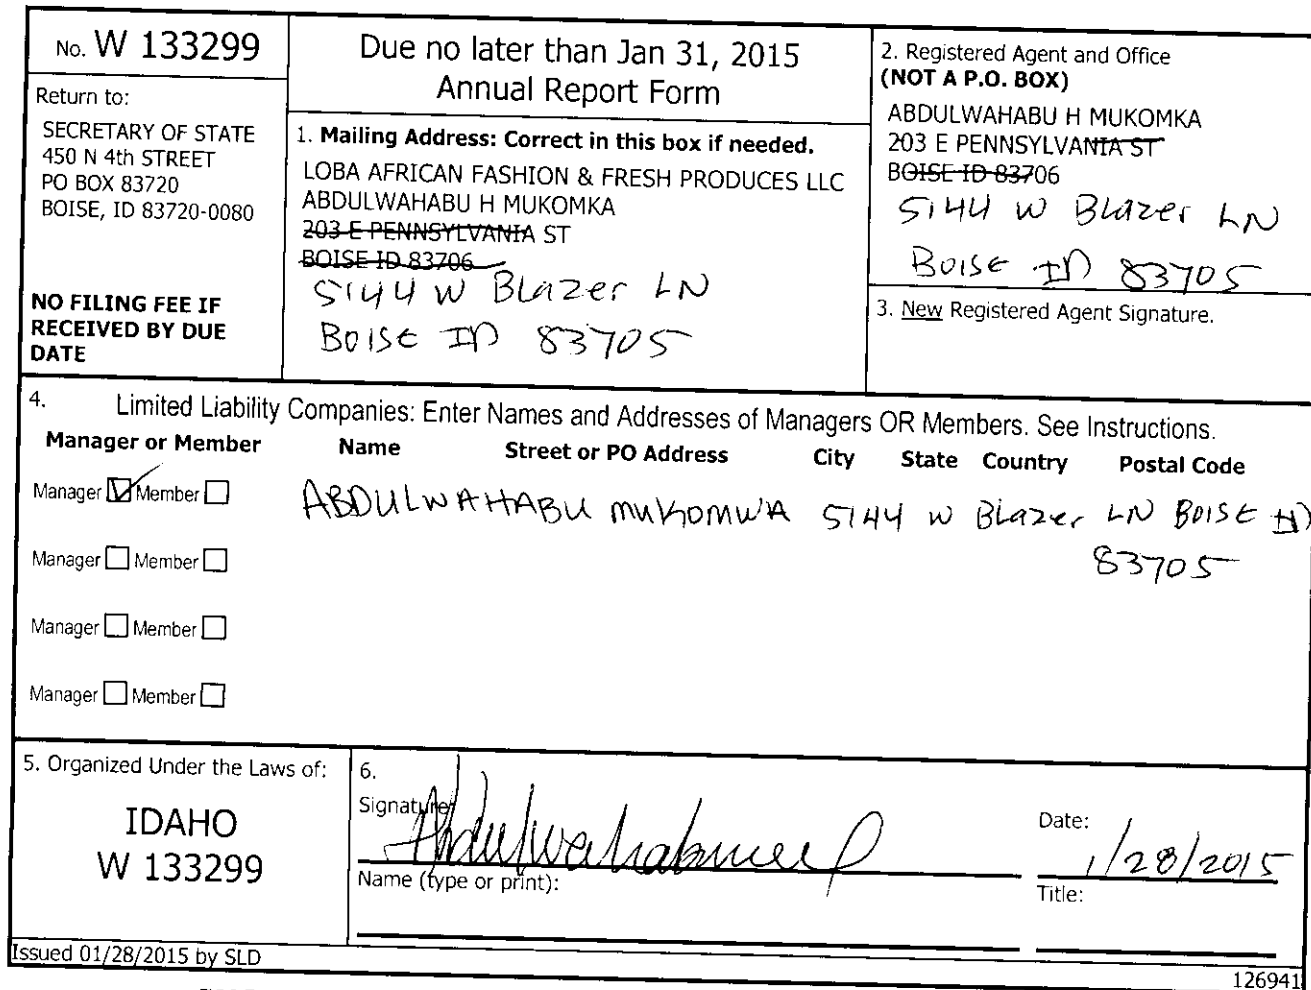 No. W 133299
Return to:
SECRETARY OF STATE
450 N 4th STREET
PO BOX 83720
BOISE, ID 83720-0080
NO FILING FEE IF
RECEIVED BY DUE
DATE
Due no later than Jan 31, 2015
Annual Report Form
1. Mailing Address: Correct in this box if needed.
LOBA AFRICAN FASHION & FRESH PRODUCES LLC
ABDULWAHABU H MUKOMKA
203 E PENNSYLVANIA ST
BOISE ID 83706
5144 W Blazer LN
BOISE ID 83705
2. Registered Agent and Office
(NOT A P.O. BOX)
ABDULWAHABU H MUKOMKA
203 E PENNSYLVANIA ST
BOISE ID 83706
5144 W Blazer LN
BOISE ID 83705
3. New Registered Agent Signature.
4. Limited Liability Companies: Enter Names and Addresses of Managers OR Members. See Instructions.
Manager or Member Name Street or PO Address City State Country Postal Code
Manager Member ABDULWAHABU MUKOMWA 5144 W Blazer LN BOISE ID
83705
Manager Member
Manager Member
Manager Member
5. Organized Under the Laws of:
IDAHO
W 133299
6.
Signature:
Date:
1/28/2015
Name (type or print):
Title:
Issued 01/28/2015 by SLD
126941